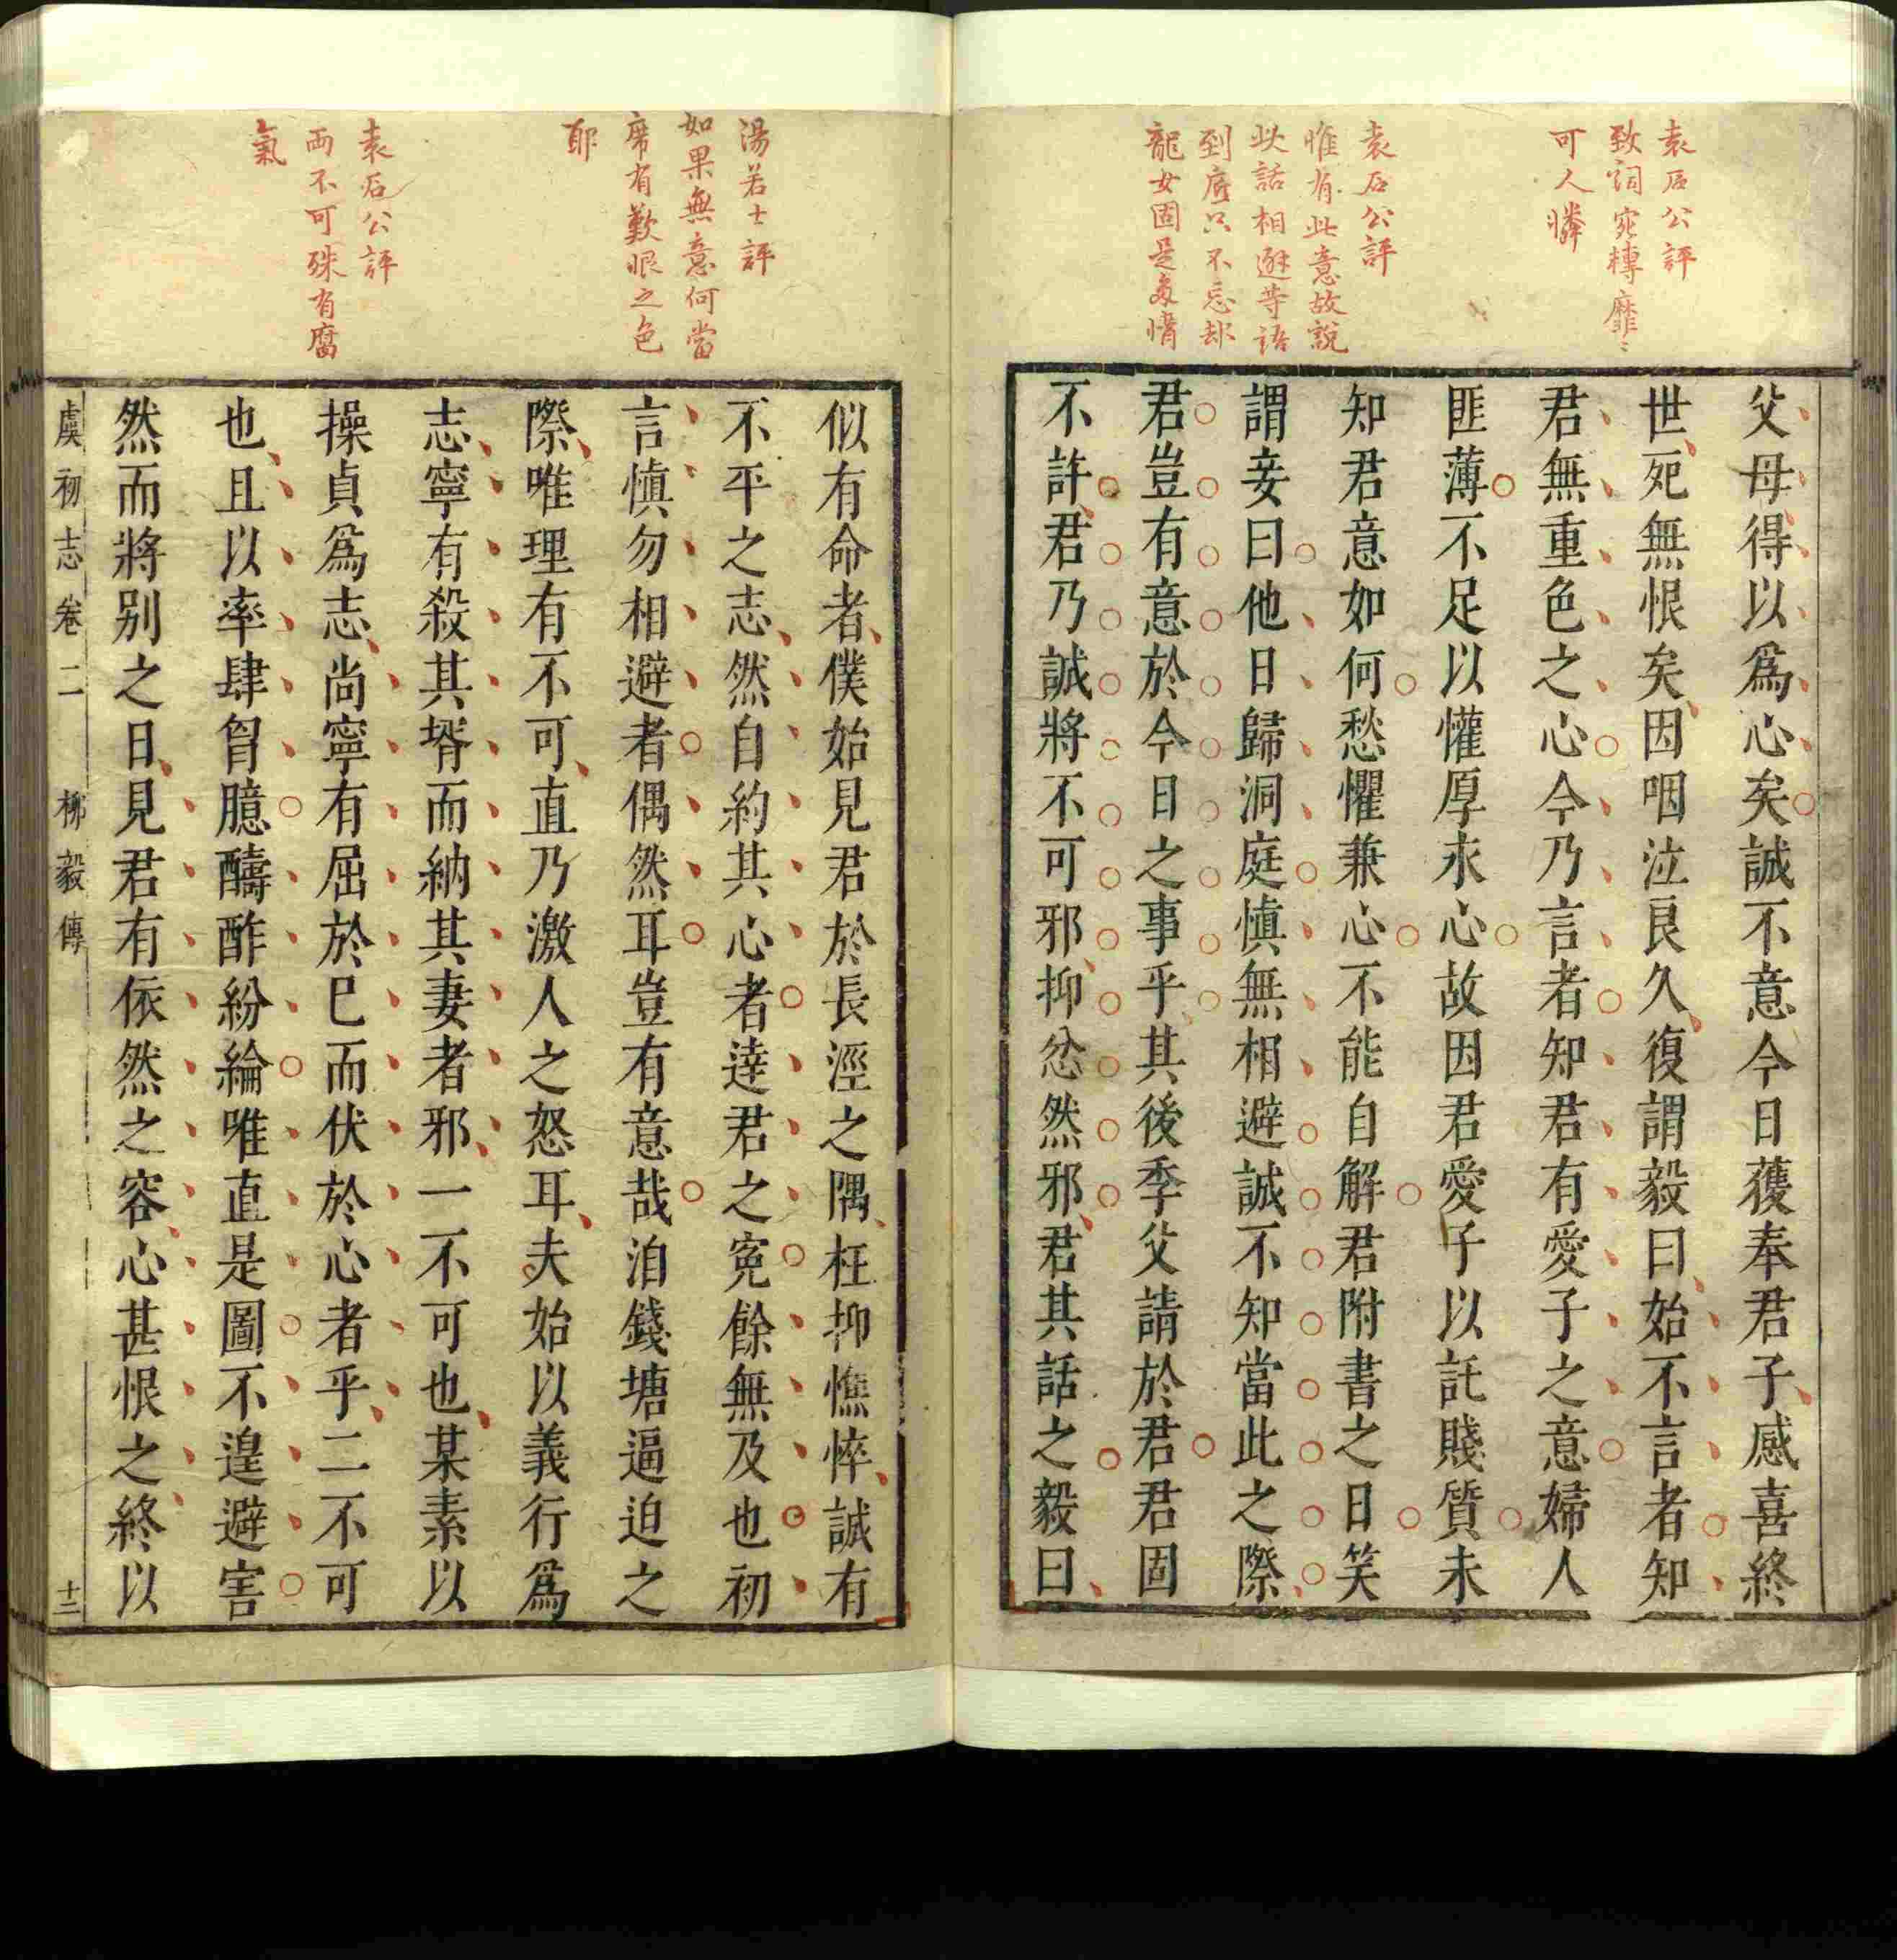 袁石公評
致詞宛轉靡〻
可人憐
袁石公評
惟有此意故說
此話相避等語
到底只不忘却
龍女固是多情
父母得以爲心矣誠不意今日獲奉君子感喜終
世死無恨矣因咽泣良久復謂毅曰始不言者知
君無重色之心今乃言者知君有愛子之意婦人
匪薄不足以懽厚永心故因君愛子以託賤質未
知君意如何愁懼兼心不能自解君附書之日笑
謂妾曰他日歸洞庭慎無相避誠不知當此之際
君豈有意於今日之事乎其後季父請於君君固
不許君乃誠將不可邪抑忿然邪君其話之毅曰
湯若士評
如果無意何當
席有歎恨之色
耶
袁石公評
兩不可殊有腐
氣
似有命者僕始見君於長涇之隅枉抑憔悴誠有
不平之志然自約其心者達君之寃餘無及也初
言慎勿相避者偶然耳豈有意哉洎錢塘逼迫之
際唯理有不可直乃激人之怒耳夫始以義行爲
志寧有殺其壻而納其妻者邪一不可也某素以
操貞爲志尚寧有屈於巳而伏於心者乎二不可
也且以率肆胷臆酬酢紛綸唯直是圖不遑避害
然而將别之日見君有依然之容心甚恨之終以
虞初志卷二 柳毅傳 十三